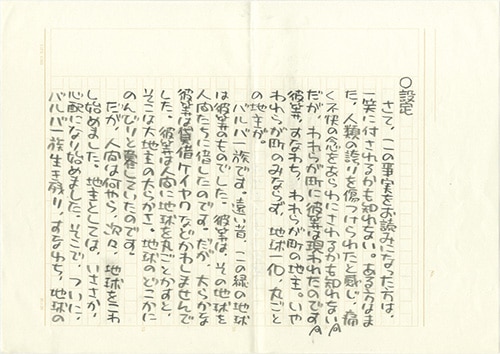 〇設定
さて、この事実をお読みになった方は、
一笑に付されるかも知れない。ある方はま
た、人類の誇りを傷つけられたと感じ、痛
く不快の念をあらわにされるかも知れない。
だが、われらが町に彼等は現われたのです。
彼等、すなわち、われらが町の地主。いや
われらが町のみならず、地球一個、丸ごと
の地主が。
バルバ一族です。遠い昔、この緑の地球
は彼等のものでした。彼等は、その地球を
人間たちに借したのです。だが、大らかな
彼等は賃借ケイヤクなどかわしませんで
した。彼等は人間に地球を丸ごとかすと、
そこは大地主の大らかさ。地球のどこかに
のんびりと暮していたのです。
だが、人間は何やら、次々、地球をこわ
し始めました。地主としては、いささか、
心配になり始めました。そこで、ついに、
バルバ一族生き残り、すなわち、地球の